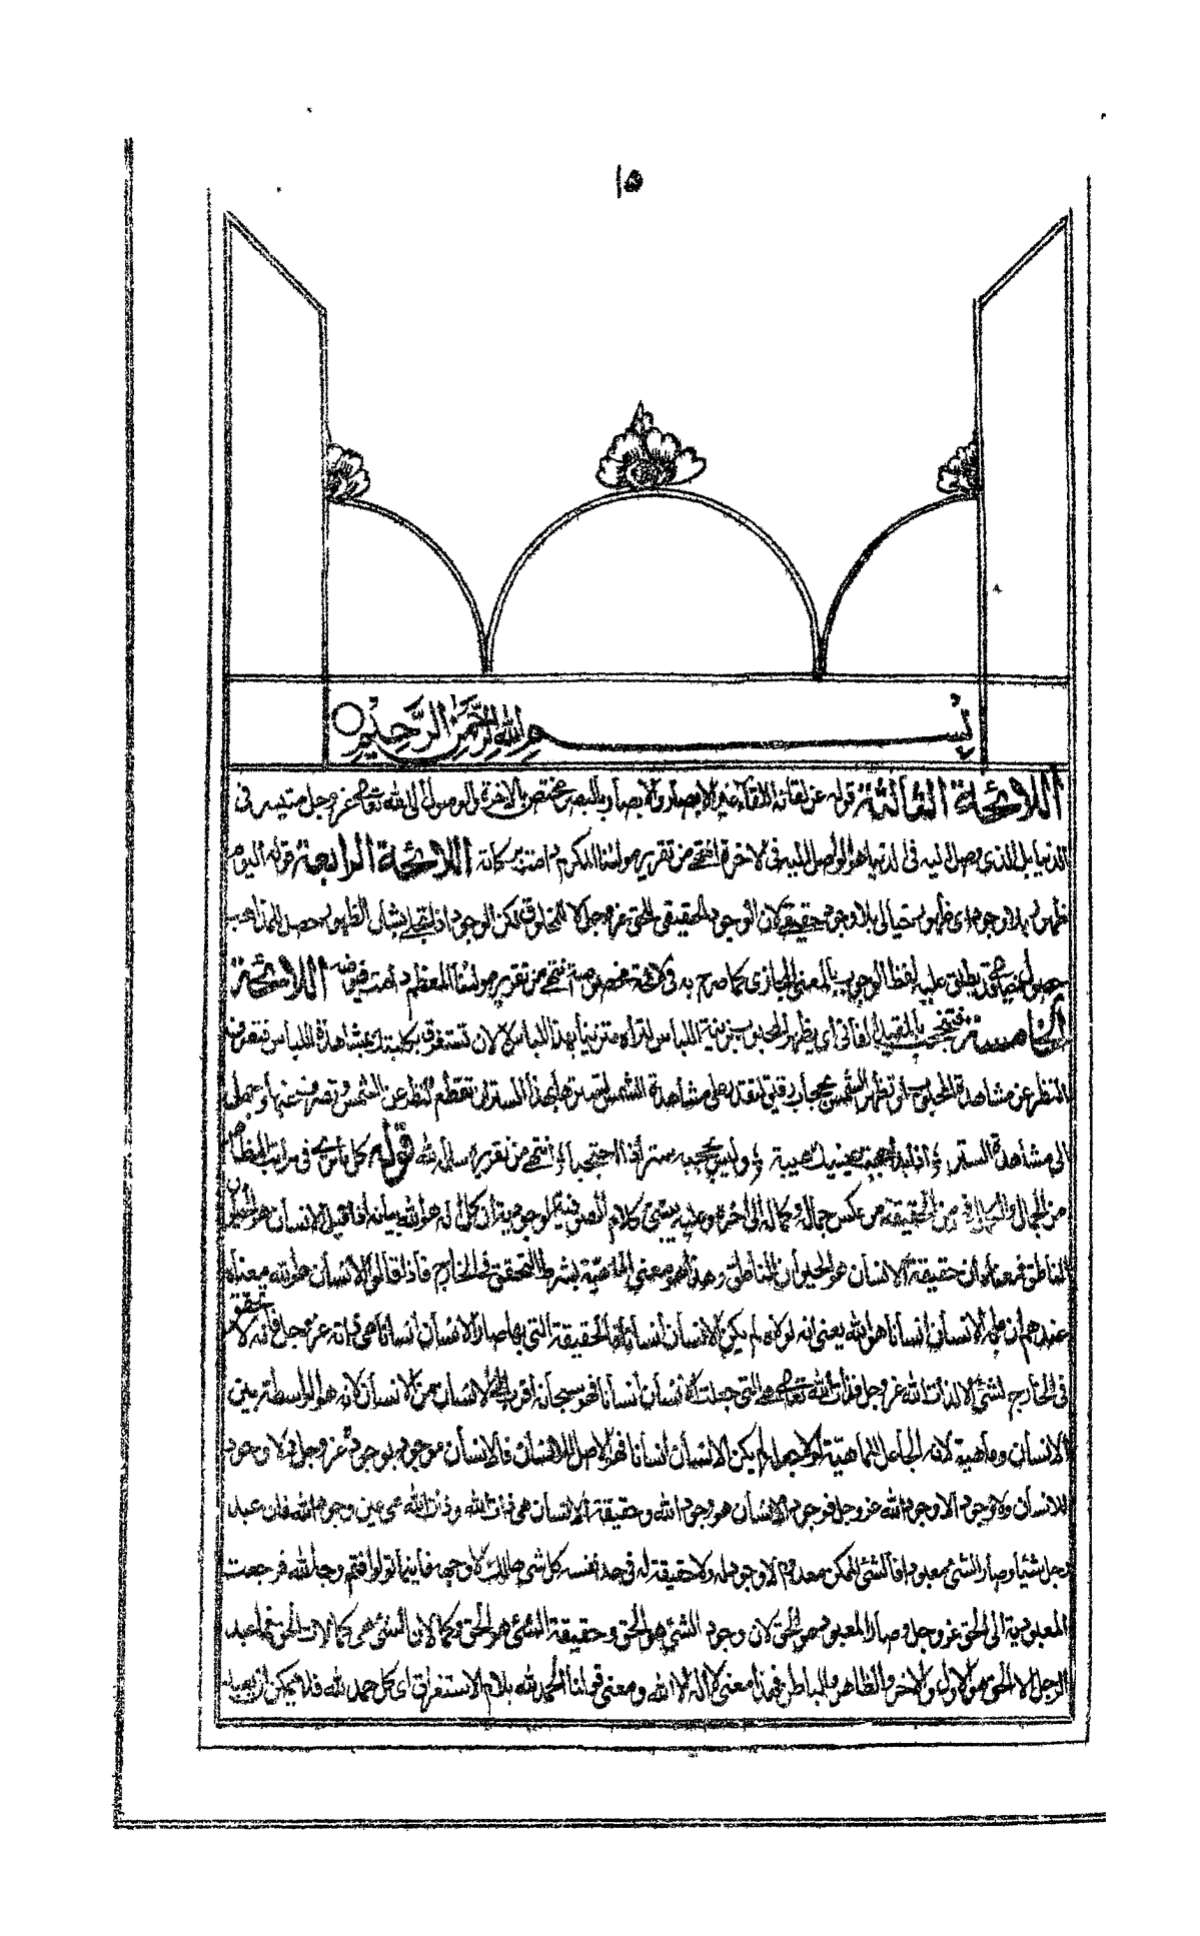 ١٥
بسم الله الرحمن الرحيم
اللائحة الثالثة قوله عن لقائه اللقاء غير الابصار والابصار بالبصر مختص بالاخرة والوصول الى الله تعالى عز وجل متيسر فى
الدنيا بل الذى وصل اليه فى الدنيا هو الواصل اليه فى الاخرة انتهى من تقرير مولنا المكرم دامت بركاته اللائحة الرابعة قوله اليوم
ظهور بلا وجود اى ظهور خيالى بلا وجود حقيقى لان الوجود الحقيقى للحق عز وجل لا للمخلوق لكن الوجود الظهور حصل
حصول قد يطلق عليه لفظ الوجود بالمعنى المجازى كما صرح به فى لائحة مخصوصة انتهى من تقرير مولنا المعظم دامت فيوضه اللائحة
الخامسة فتحجب بالمقيد الفانى اى يظهر المحبوب بزينة اللباس لتراه متزينا بهذا اللباس لا لان تستغرق بكليتك بمشاهدة اللباس فتغرق
النظر عن مشاهدة المحبوب او تظهر الشمس بحجاب رقيق لتقدر على مشاهدة الشمس بهذا الستر لا ان تقطع النظر عن الشمس وتصرف عنها
الى مشاهدة الستر وليس بحجبه ستر انما احتجب انتهى من تقرير سلمه الله قوله كل ناس فى مراتب
من الجمال والكمال فى عين الحقيقة من عكس جماله وكماله الى اخره وعليه يبتنى كلام الصوفية الوجودية ان كل اله هو الله بيانه اذا قيل الانسان هو الحيوان
الناطق فمعناه ان حقيقة الانسان هو الحيوان الناطق وهذا هو معنى الماهية بشرط التحقق فى الخارج فاذا قالوا الانسان هو الله معناه
عندهم ان ما به الانسان انسانا هو الله يعنى انه لولاه لم يكن الانسان انسانا فالحقيقة التى بها صار الانسان انسانا هى ذاته عز وجل فانه لا تحقق
فى الخارج لشئ الا لذات الله عز وجل فذات الله تعالى هى التى جعلت الانسان انسانا فهو سبحانه اقرب الى الانسان من الانسان لانه هو الواسطة بين
الانسان وماهية لانه الجاعل للماهية لولا جعله لم يكن الانسان انسانا فهو الاصل للانسان فالانسان موجود بوجوده عز وجل فلا وجود
للانسان ولا وجود الا وجود الله عز وجل فوجود الانسان هو وجود الله وحقيقة الانسان هى ذات الله وذات الله هى عين وجود الله فان عبد
رجل شيئا وصار الشئ معبودا فالشئ الممكن معدوم لا وجود له ولا حقيقة له فى حد نفسه كل شئ هالك الا وجهه فاينما تولوا فثم وجه الله فرجعت
المعبودية الى الحق عز وجل وصار المعبود هو الحق لان وجود الشئ هو الحق وحقيقة الشئ هو الحق وكمالات الشئ هى كمالات الحق فما عبد
الرجل الا الحق هو الاول والاخر والظاهر والباطن فهذا معنى لا اله الا الله ومعنى قولنا الحمد لله بلام الاستغراق اى كل حمد لله فلا يمكن ان يعبد